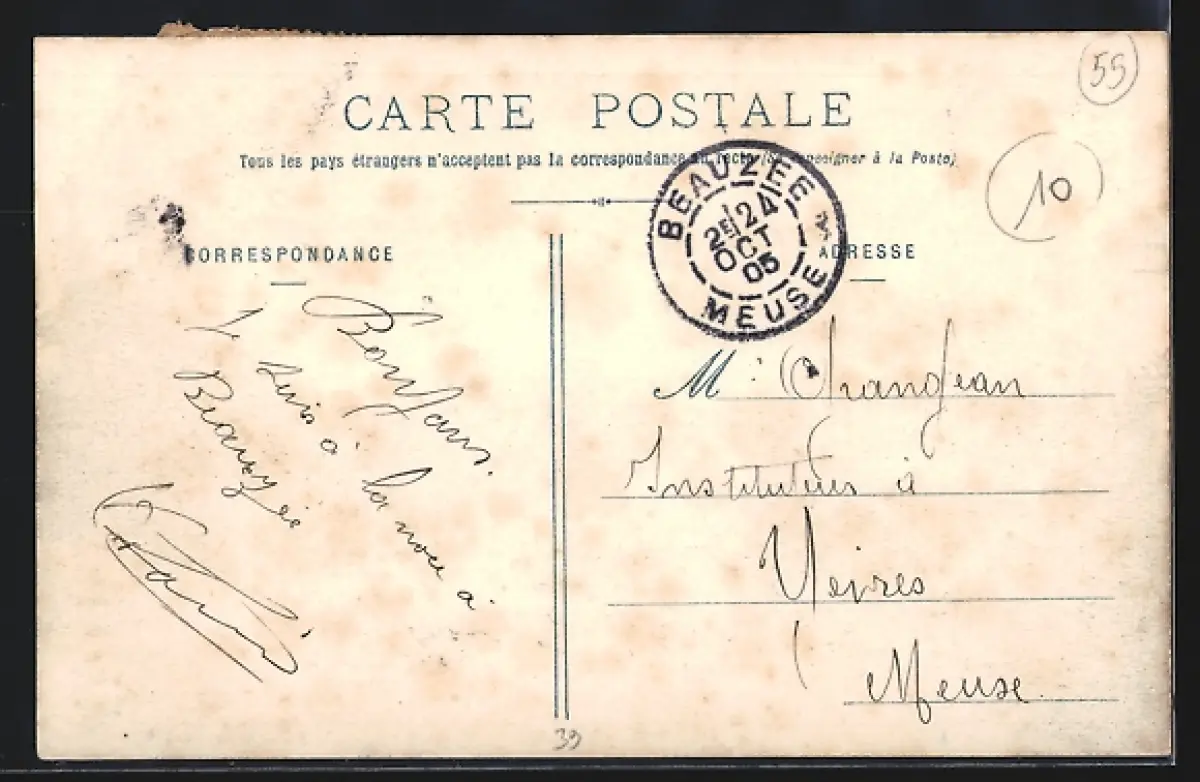 55
CARTE POSTALE
Tous les pays étrangers n'acceptent pas la correspondance au recto (Se renseigner à la Poste)
10
BEAUZÉE
2E/24
OCT
05
MEUSE
CORRESPONDANCE
ADRESSE
Bonjour.
Je suis à la noce à
Beauzée
Mr Changean
Instituteur à
Meuse
39